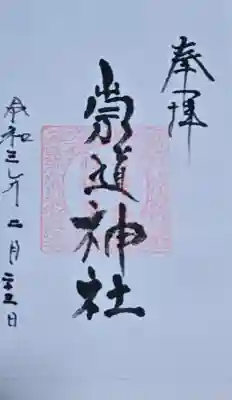 奉拝
崇道神社
令和三年二月二十五日